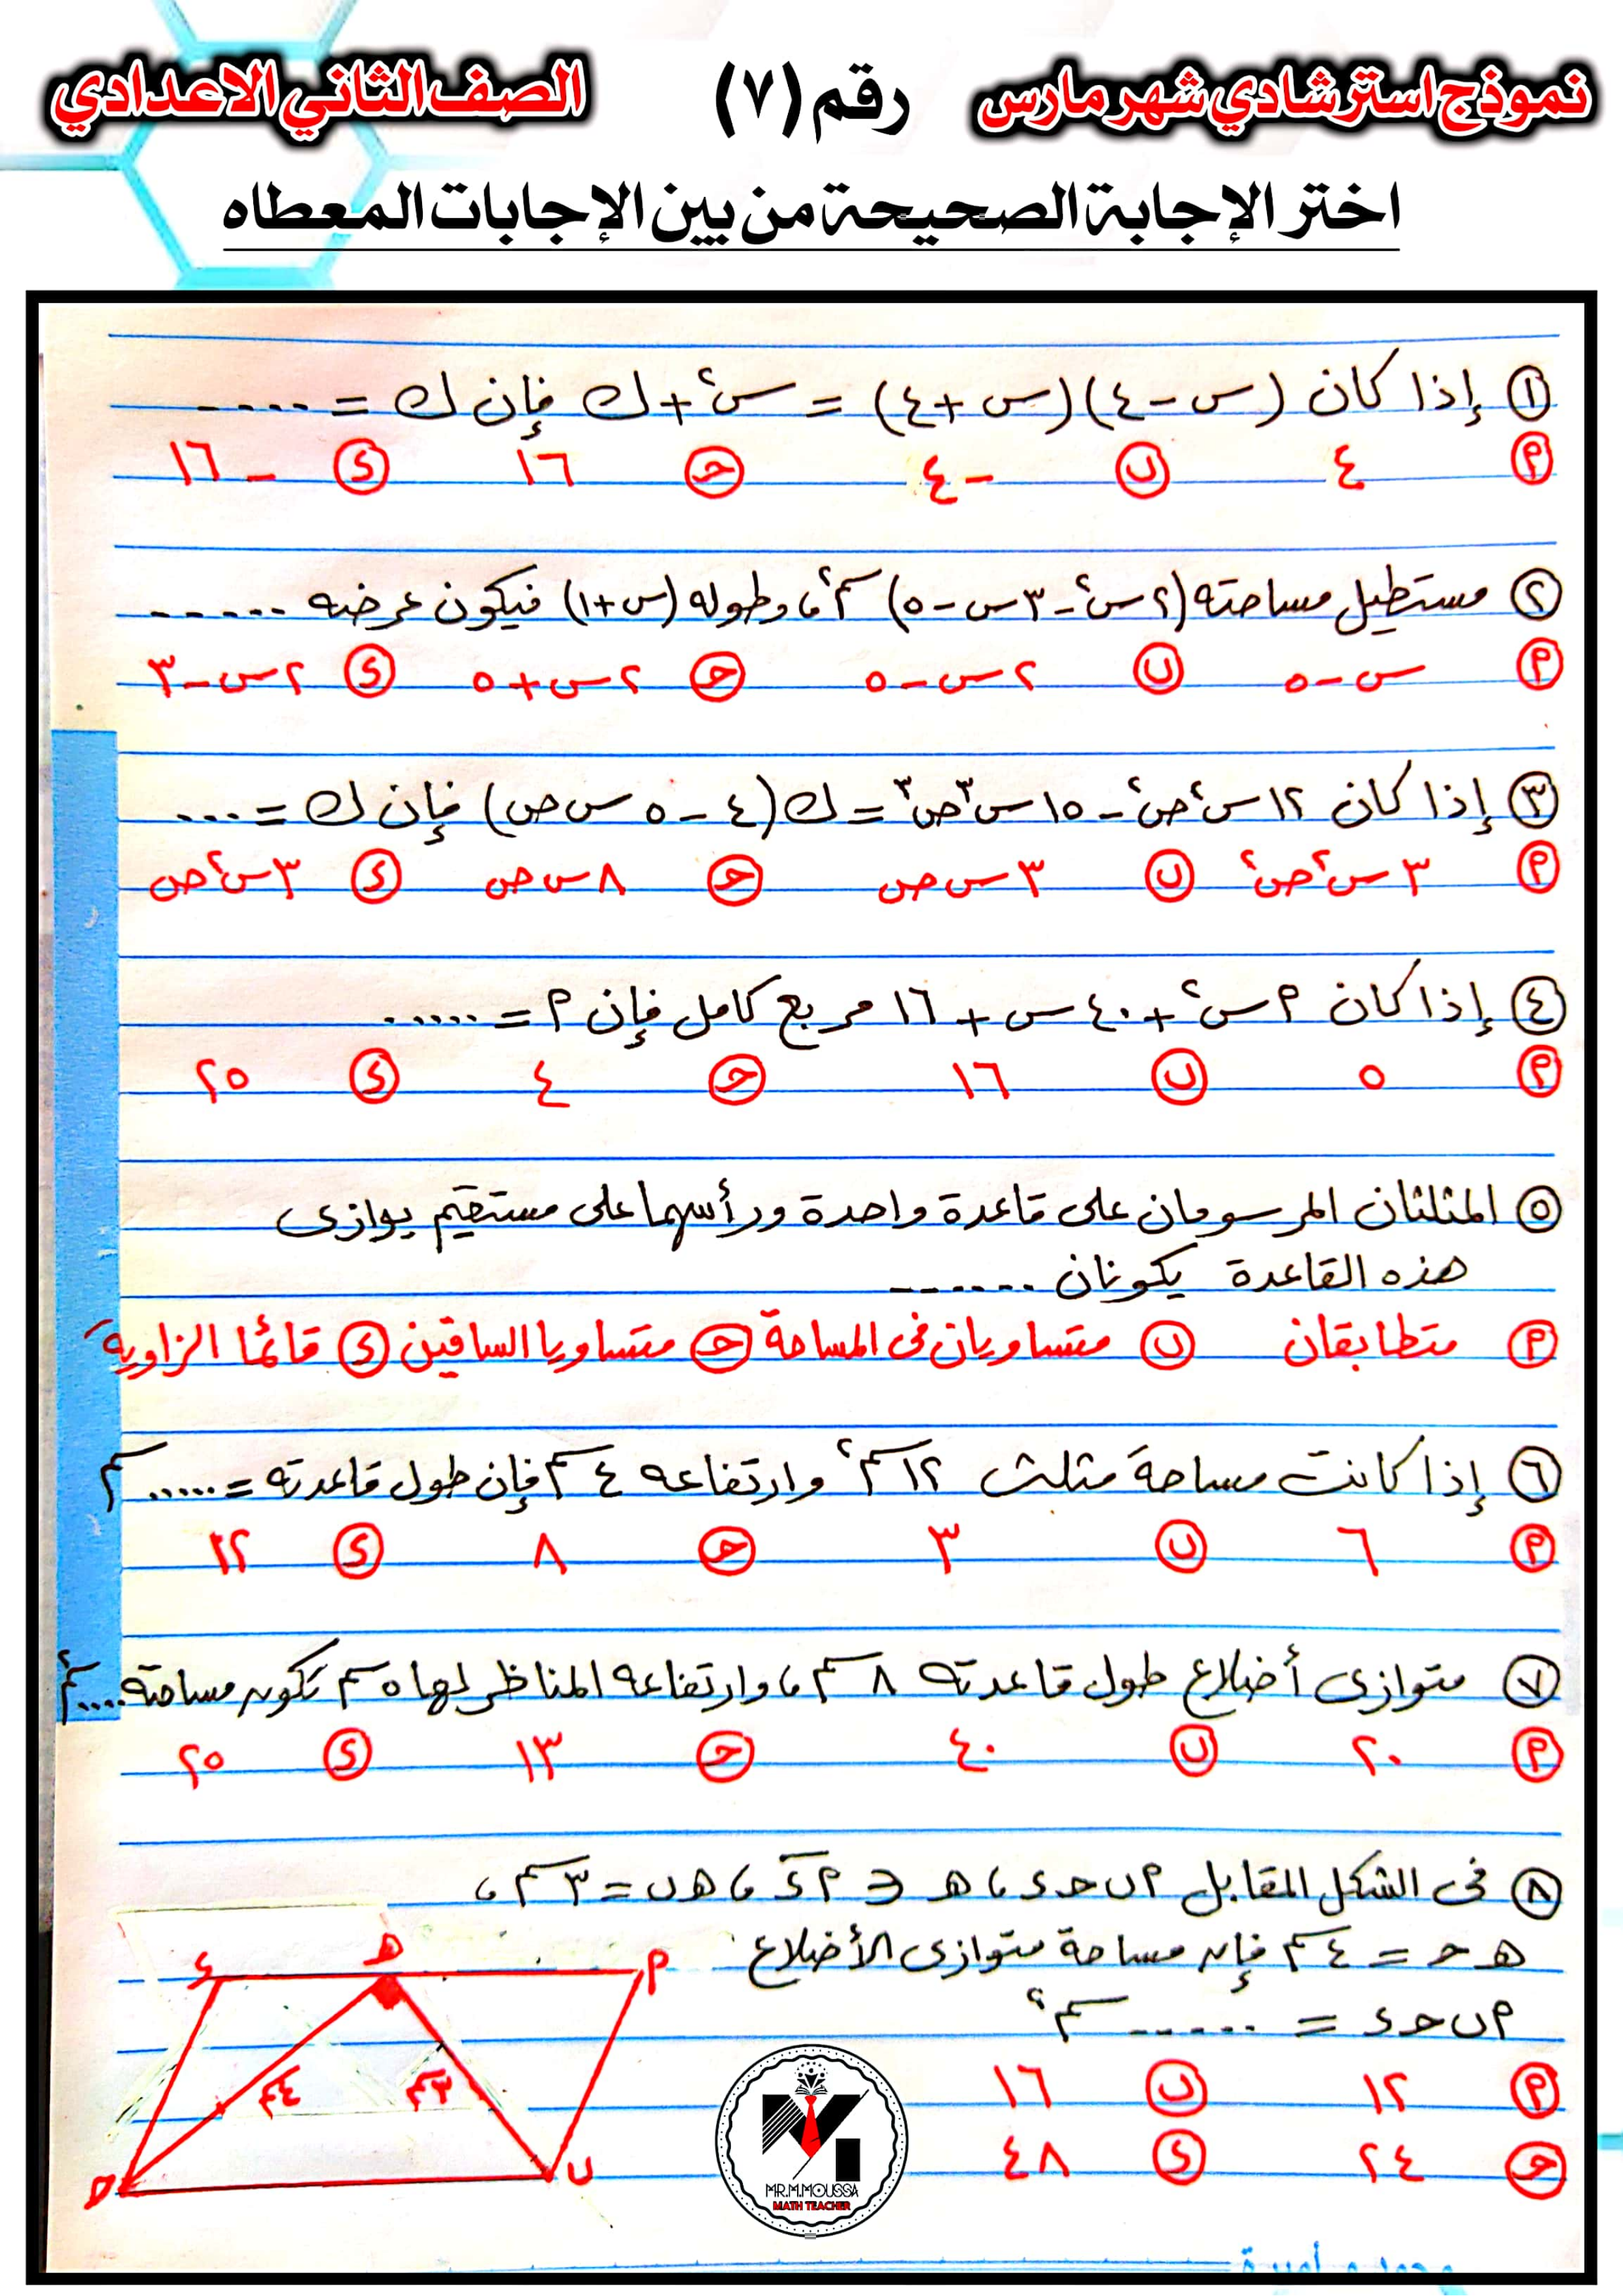 نموذج استرشادي شهر مارس رقم (٧) الصف الثاني الاعدادي
اختر الإجابة الصحيحة من بين الإجابات المعطاه
١ إذا كان (س - ٤)(س + ٤) = س٢ + ك فإن ك = .....
٢ ٤ ب -٤ ح ١٦ ء -١٦
٢ مستطيل مساحته (٢س٢ - ٣س - ٥) سم٢ ، وطوله (س + ١) فيكون عرضه ......
٢ س - ٥ ب ٢س - ٥ ح ٢س + ٥ ء ٢س - ٣
٣ إذا كان ١٢س٢ص٢ - ١٥س٣ص٣ = ك(٤ - ٥ س ص) فإن ك = ...
٢ ٣س٢ص٢ ب ٣س ص ح ٨س ص ء ٣س٢ص
٤ إذا كان ٢س٢ + ٤٠س + ١٦ مربع كامل فإن ٢ = ......
٢ ٥ ب ١٦ ح ٤ ء ٢٥
٥ المثلثان المرسومان على قاعدة واحدة ورأسهما على مستقيم يوازى
هذه القاعدة يكونان .......
٢ متطابقان ب متساويان فى المساحة ح متساويا الساقين ء قائما الزاوية
٦ إذا كانت مساحة مثلث ١٢ سم٢ وارتفاعه ٤ سم فإن طول قاعدته = ...... سم
٢ ٦ ب ٣ ح ٨ ء ١٢
٧ متوازى أضلاع طول قاعدته ٨ سم ، وارتفاعه المناظر لها ٥ سم تكون مساحته .... سم٢
٢ ٢٠ ب ٤٠ ح ١٣ ء ٢٥
٨ فى الشكل المقابل ٢ب ح ء ، ه ∈ ٢ء ، ه ب = ٣ سم ،
ه ح = ٤ سم فإن مساحة متوازى الأضلاع
٢ب ح ء = ...... سم٢
٢ ١٢ ب ١٦
ح ٢٤ ء ٤٨
ء ه ٢
٤سم ٣سم
ح ب
MR.M.MOUSSA
MATH TEACHER